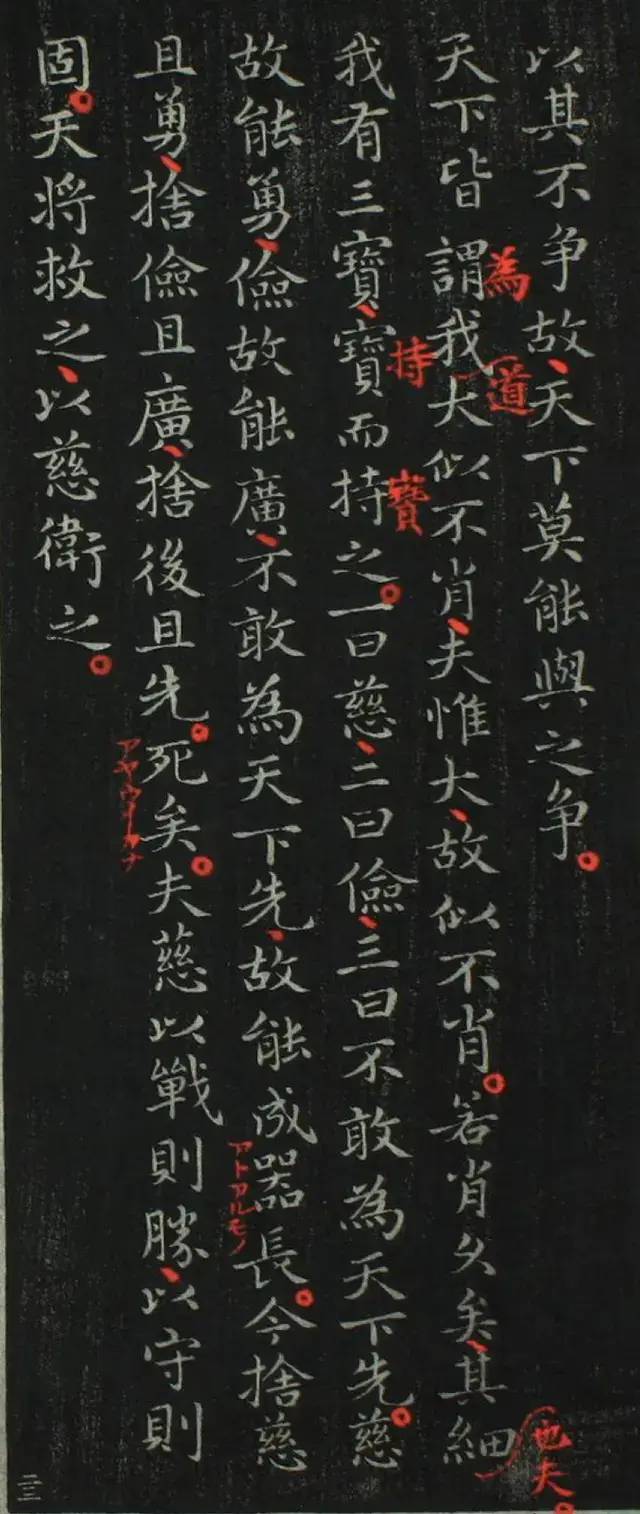 以其不争故、天下莫能與之争。
天下皆謂我大似不肖、夫惟大、故似不肖。若肖久矣、其細
我有三寶、寶而持之。一曰慈、二曰儉、三曰不敢為天下先。慈
故能勇、儉故能廣、不敢為天下先、故能成器長。今捨慈
且勇、捨儉且廣、捨後且先。死矣。夫慈以戰則勝、以守則
固。天将救之、以慈衛之。
為
道
也夫。
持
寶
アトアルモノ
二三